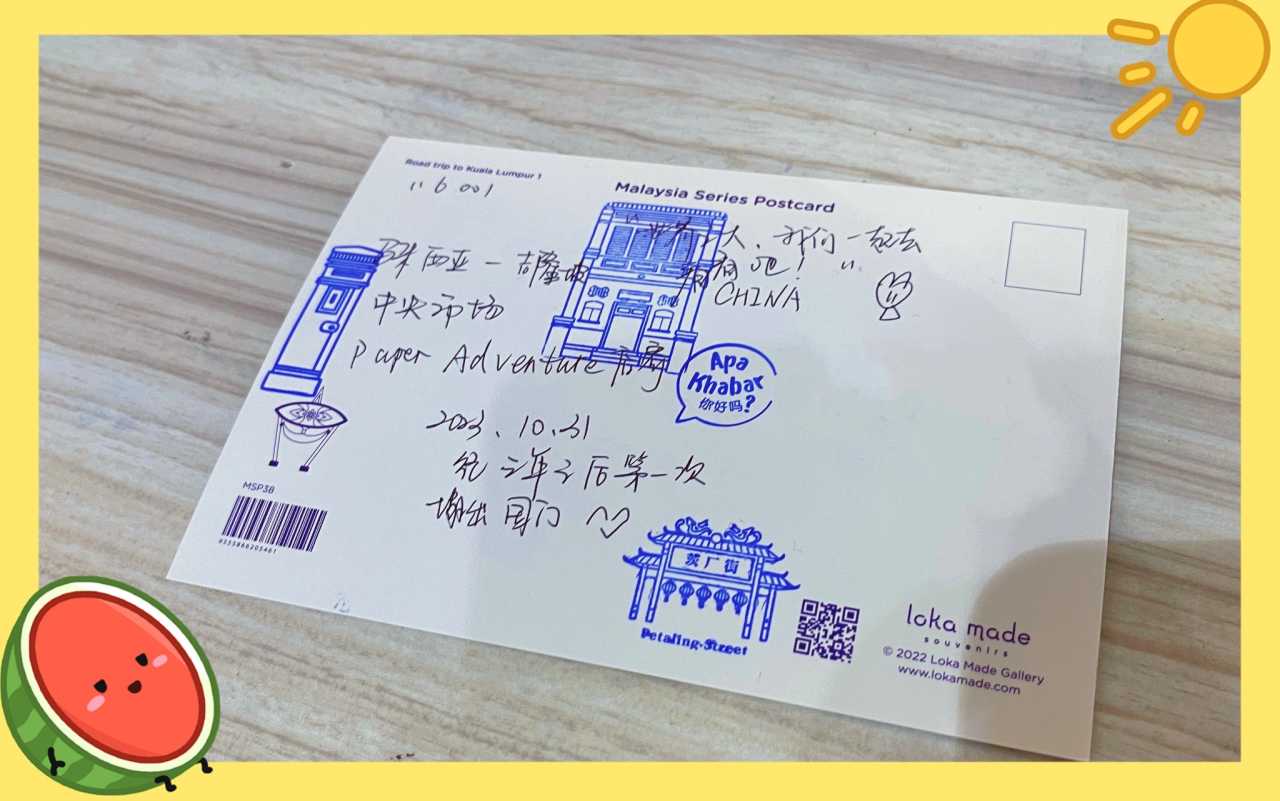 Road trip to Kuala Lumpur 1
Malaysia Series Postcard
"6001
马来西亚 — 吉隆坡
中央市场
Paper Adventure
2023.10.31
三年之后第一次
踏出国门
世界之大,我们一起去
看看吧!"
CHINA
Apa
Khabar
你好吗?
MSP38
9555866205461
茨厂街
Petaling Street
loka made
souvenirs
© 2022 Loka Made Gallery
www.lokamade.com